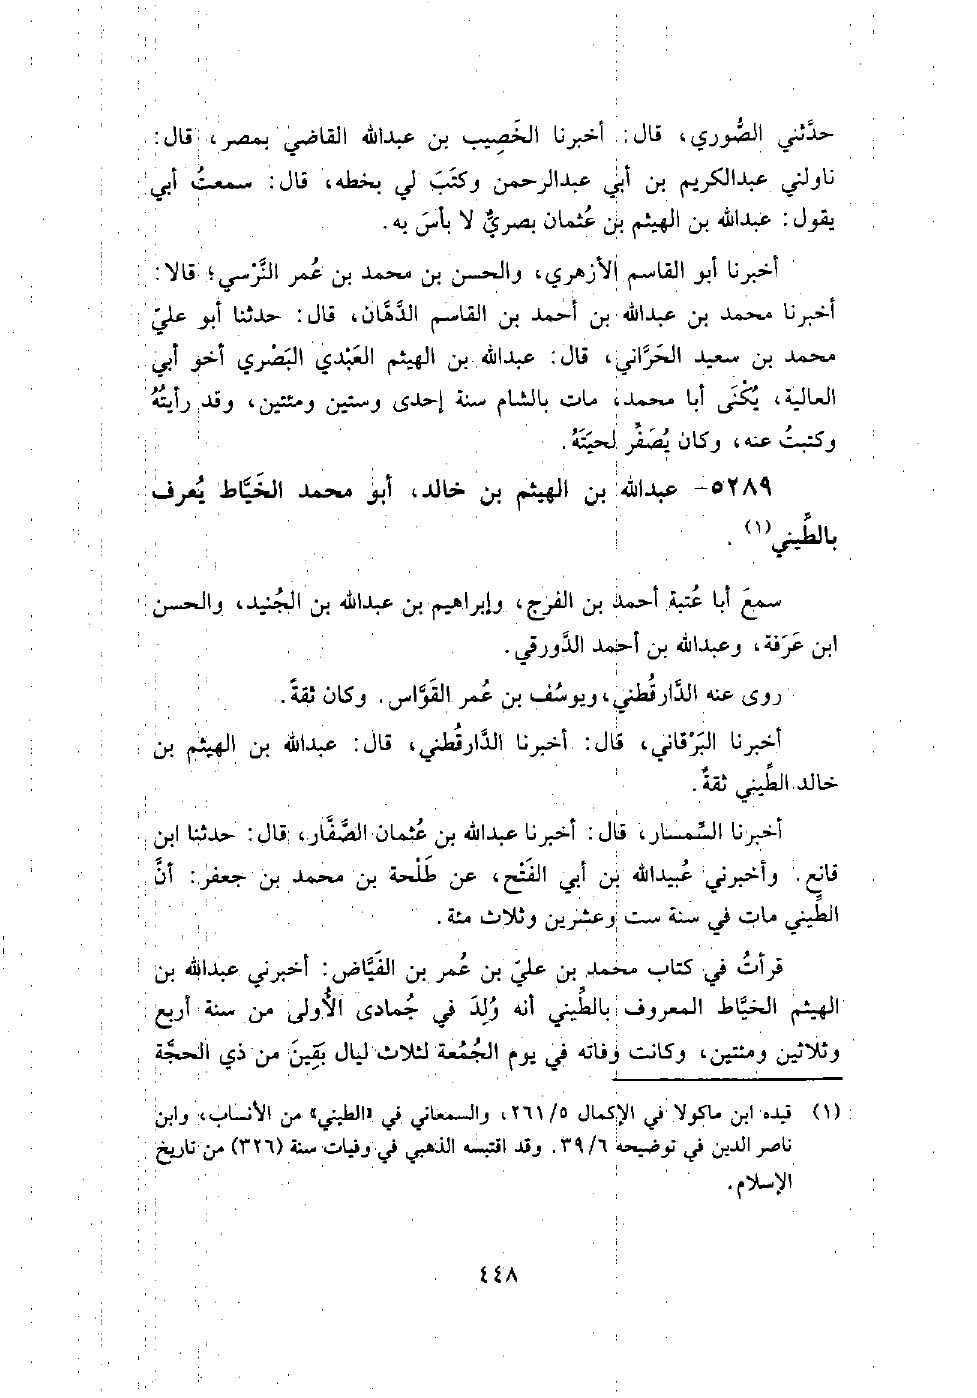 حدَّثني الصُّوري، قال: أخبرنا الخَصِيب بن عبدالله القاضي بمصر، قال:
ناولني عبدالكريم بن أبي عبدالرحمن وكتَبَ لي بخطه، قال: سمعتُ أبي
يقول: عبدالله بن الهيثم بن عُثمان بصريٌّ لا بأسَ به.
أخبرنا أبو القاسم الأزهري، والحسن بن محمد بن عُمر النَّرْسي؛ قالا:
أخبرنا محمد بن عبدالله بن أحمد بن القاسم الدَّهَّان، قال: حدثنا أبو عليّ
محمد بن سعيد الحَرَّاني، قال: عبدالله بن الهيثم العَبْدي البَصْري أخو أبي
العالية، يُكْنَى أبا محمد، مات بالشام سنة إحدى وستين ومئتين، وقد رأيتُهُ
وكتبتُ عنه، وكان يُصَفِّر لحيَتَهُ.
٥٢٨٩- عبدالله بن الهيثم بن خالد، أبو محمد الخَيَّاط يُعرف
بالطِّيني(١) .
سمعَ أبا عُتبة أحمد بن الفرج، وإبراهيم بن عبدالله بن الجُنيد، والحسن
ابن عَرَفة، وعبدالله بن أحمد الدَّورقي.
روى عنه الدَّارقُطني، ويوسُف بن عُمر القَوَّاس. وكان ثقةً.
أخبرنا البَرْقاني، قال: أخبرنا الدَّارقُطني، قال: عبدالله بن الهيثم بن
خالد الطِّيني ثقةٌ.
أخبرنا السِّمسار، قال: أخبرنا عبدالله بن عُثمان الصَّفَّار، قال: حدثنا ابن
قانع. وأخبرني عُبيدالله بن أبي الفَتْح، عن طَلْحة بن محمد بن جعفر: أنَّ
الطِّيني مات في سنة ست وعشرين وثلاث مئة.
قرأتُ في كتاب محمد بن عليّ بن عُمر بن الفَيَّاض: أخبرني عبدالله بن
الهيثم الخيَّاط المعروف بالطِّيني أنه وُلِدَ في جُمادى الأُولى من سنة أربع
وثلاثين ومئتين، وكانت وفاته في يوم الجُمُعة لثلاث ليال بَقِينَ من ذي الحجَّة
(١) قيده ابن ماكولا في الإكمال ٥/ ٢٦١، والسمعاني في «الطيني» من الأنساب، وابن
ناصر الدين في توضيحه ٦/ ٣٩. وقد اقتبسه الذهبي في وفيات سنة (٣٢٦) من تاريخ
الإسلام.
٤٤٨